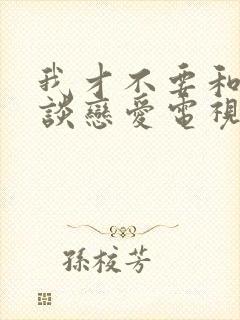 我才不要和
談戀愛電視
孫校芳